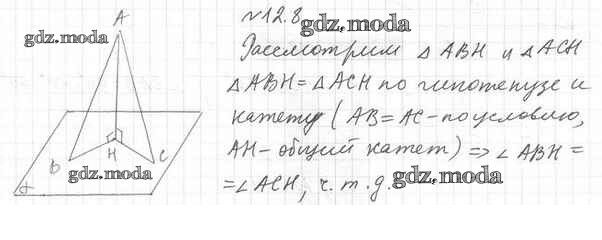 A
gdz.moda
№12.8
gdz.moda
Рассмотрим △ ABH и △ACH
△ABH = △ACH по гипотенузе и
катету (AB = AC - по условию,
AH - общий катет) => ∠ ABH =
= ∠ACH, ч. т. д.
B H C
gdz.moda
gdz.moda
α